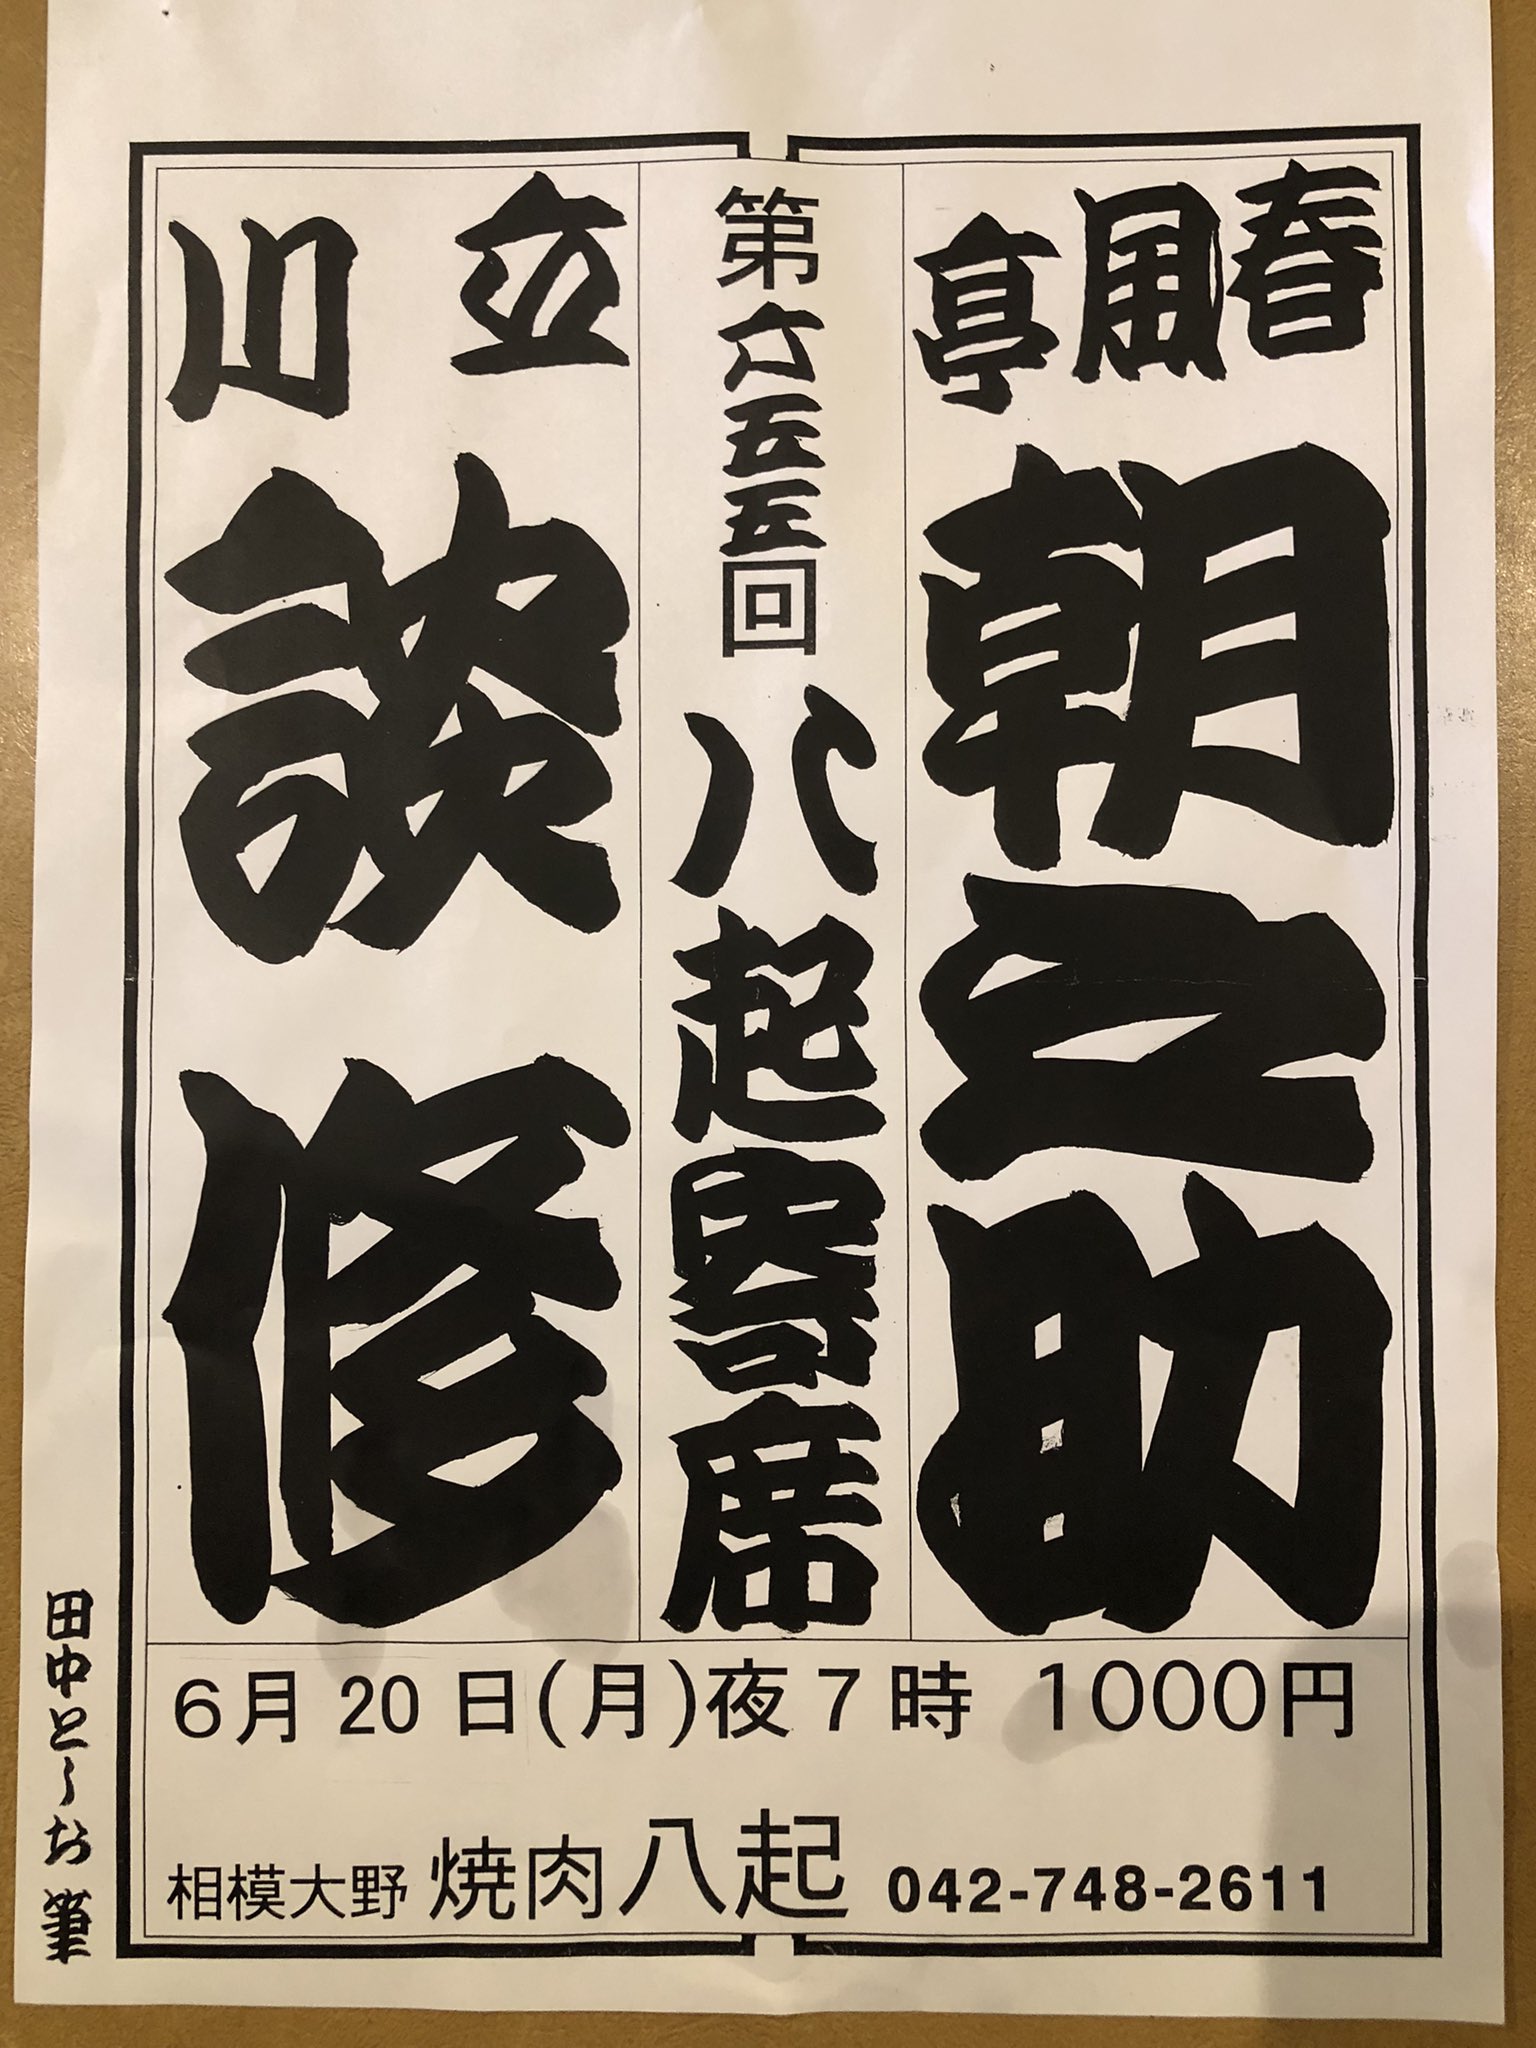 春風亭
朝之助
第六五五回
八起寄席
立川
談修
6月20日(月)夜7時 1000円
相模大野 焼肉八起 042-748-2611
田中としお筆